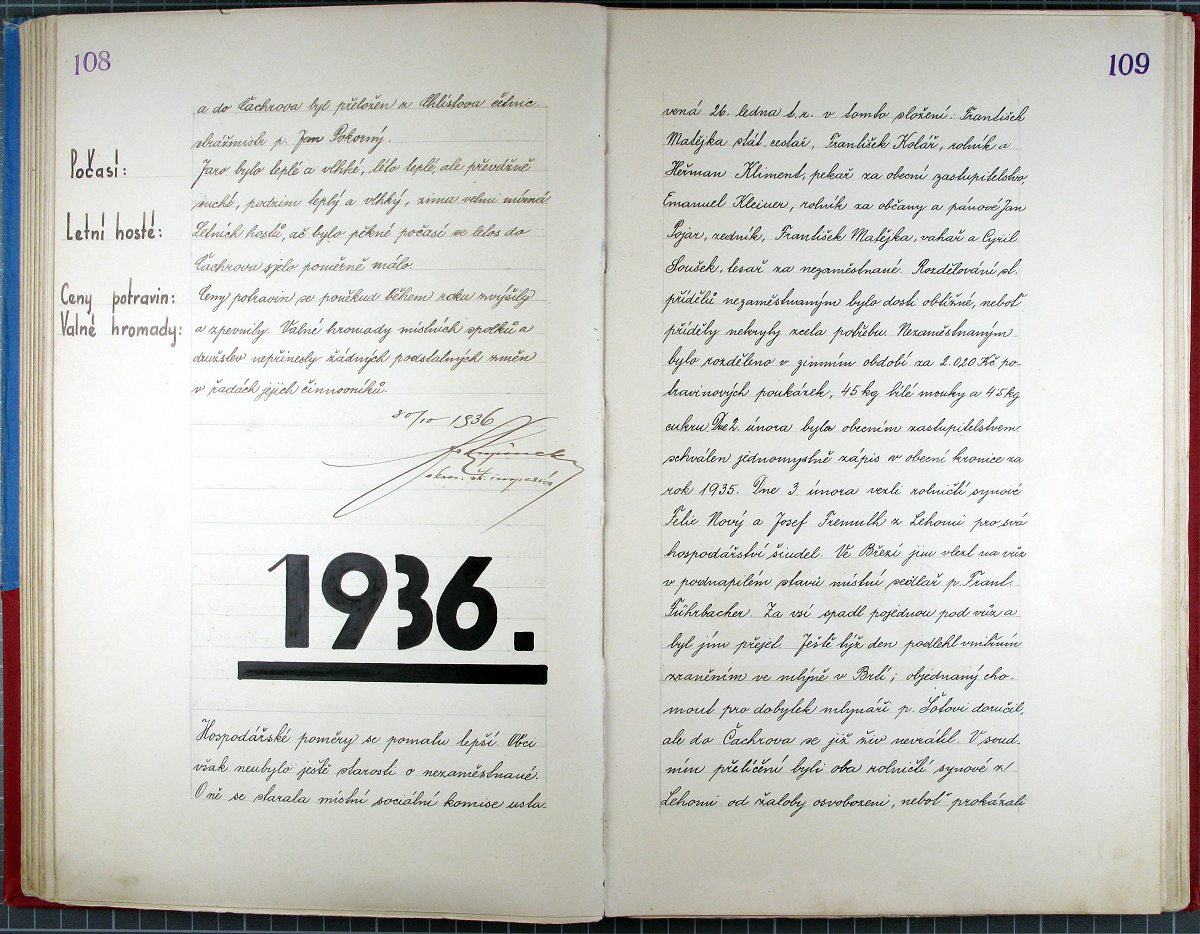 108
a do Čachrova byl přeložen z Chlistova četnic.
strážmistr p. Jan Pokorný.
Počasí:
Jaro bylo teplé a vlhké, léto teplé, ale převážně
suché, podzim teplý a vlhký, zima velmi mírná.
Letní hosté:
Letních hostů, ač bylo pěkné počasí se letos do
Čachrova sjelo poměrně málo.
Ceny potravin:
Ceny potravin se poněkud během roku zvýšily
Valné hromady:
a zpevnily. Valné hromady místních spolků a
družstev nepřinesly žádných podstatných změn
v řadách jejich činnovníků.
30/IV 1936
okres. šk. inspektor
1936.
Hospodářské poměry se pomalu lepší. Obci
však neubylo ještě starosti o nezaměstnané.
O ně se starala místní sociální komise usta-
109
vená 26. ledna t. r. v tomto složení: František
Matějka stát. cestář, František Kolář, rolník a
Heřman Kliment, pekař za obecní zastupitelstvo,
Emanuel Kleiner, rolník za občany a pánové Jan
Pojar, zedník, František Matějka, vahař a Cyril
Soušek, tesař za nezaměstnané. Rozdělování st.
přídělů nezaměstnaným bylo dosti obtížné, neboť
příděly nekryly zcela potřebu. Nezaměstnaným
bylo rozděleno v zimním období za 2.020 Kč po-
travinových poukázek, 45 kg bílé mouky a 45 kg
cukru. Dne 2. února byla obecním zastupitelstvem
schválen jednomyslně zápis v obecní kronice za
rok 1935. Dne 3. února vezli rolničtí synové
Felix Nový a Josef Tremulh z Lehomi pro svá
hospodářství šindel. Ve Březí jim vlezl na vůz
v podnapilém stavu místní sedlář p. Frant.
Führbacher. Za vsí spadl pojednou pod vůz a
byl jím přejet. Ještě týž den podlehl vnitřním
zraněním ve mlýně v Brtí; objednaný cho-
mout pro dobytek mlynáři p. Šotovi doručil,
ale do Čachrova se již živ nevrátil. V soud-
ním přelíčení byli oba rolničtí synové z
Lehomi od žaloby osvobozeni, neboť prokázali